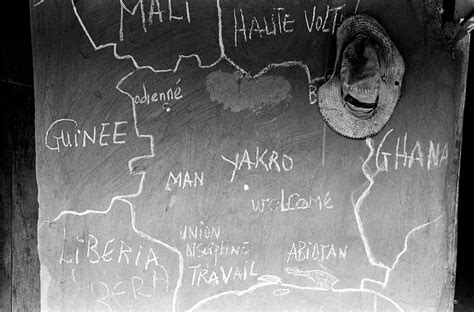 MALI
HAUTE VOLT
odienné
B
GUINEE
GHANA
MAN
YAKRO
welcome
LIBERIA
UNION
DISCIPLINE
TRAVAIL
ABIDJAN